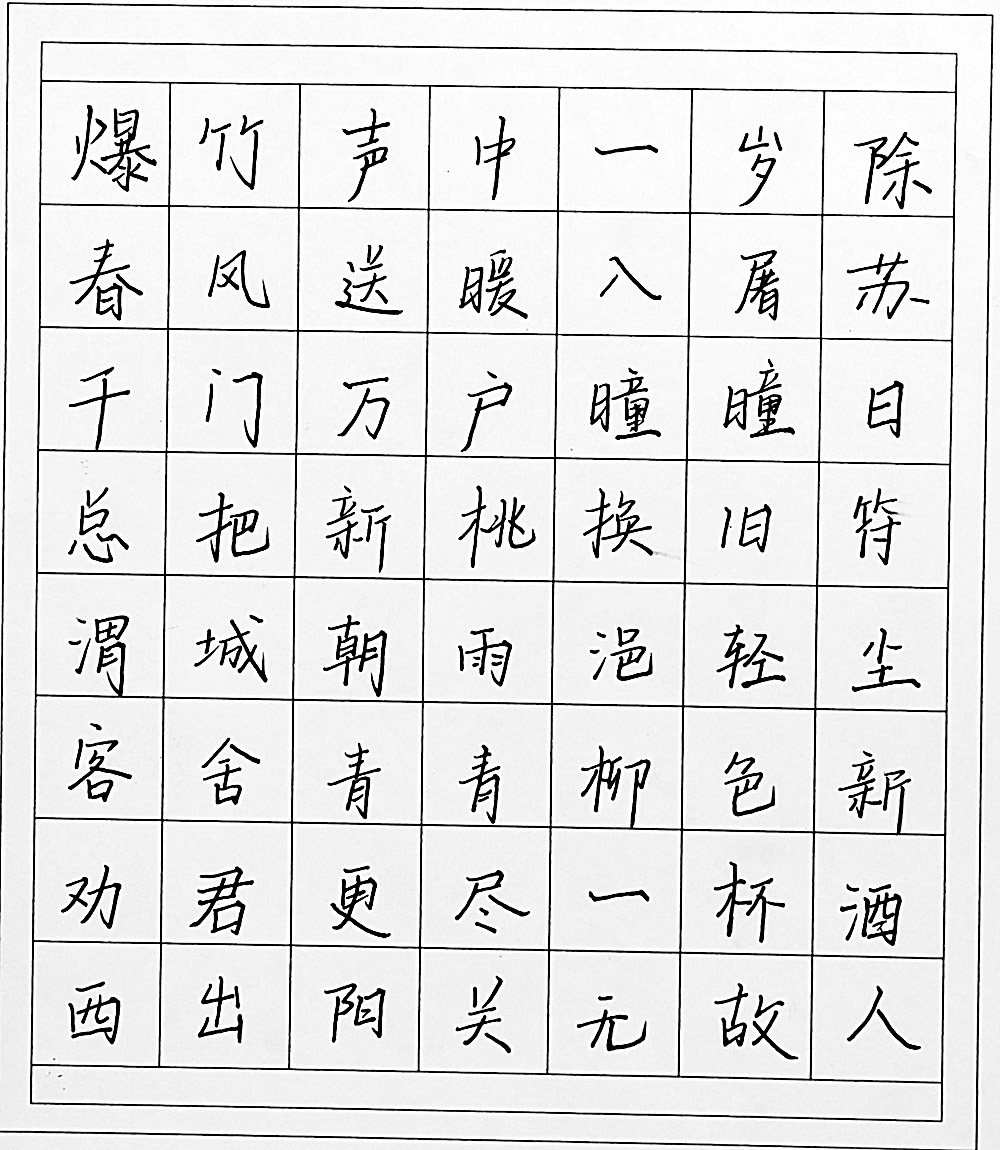 爆竹声中一岁除
春风送暖入屠苏
千门万户曈曈日
总把新桃换旧符
渭城朝雨浥轻尘
客舍青青柳色新
劝君更尽一杯酒
西出阳关无故人